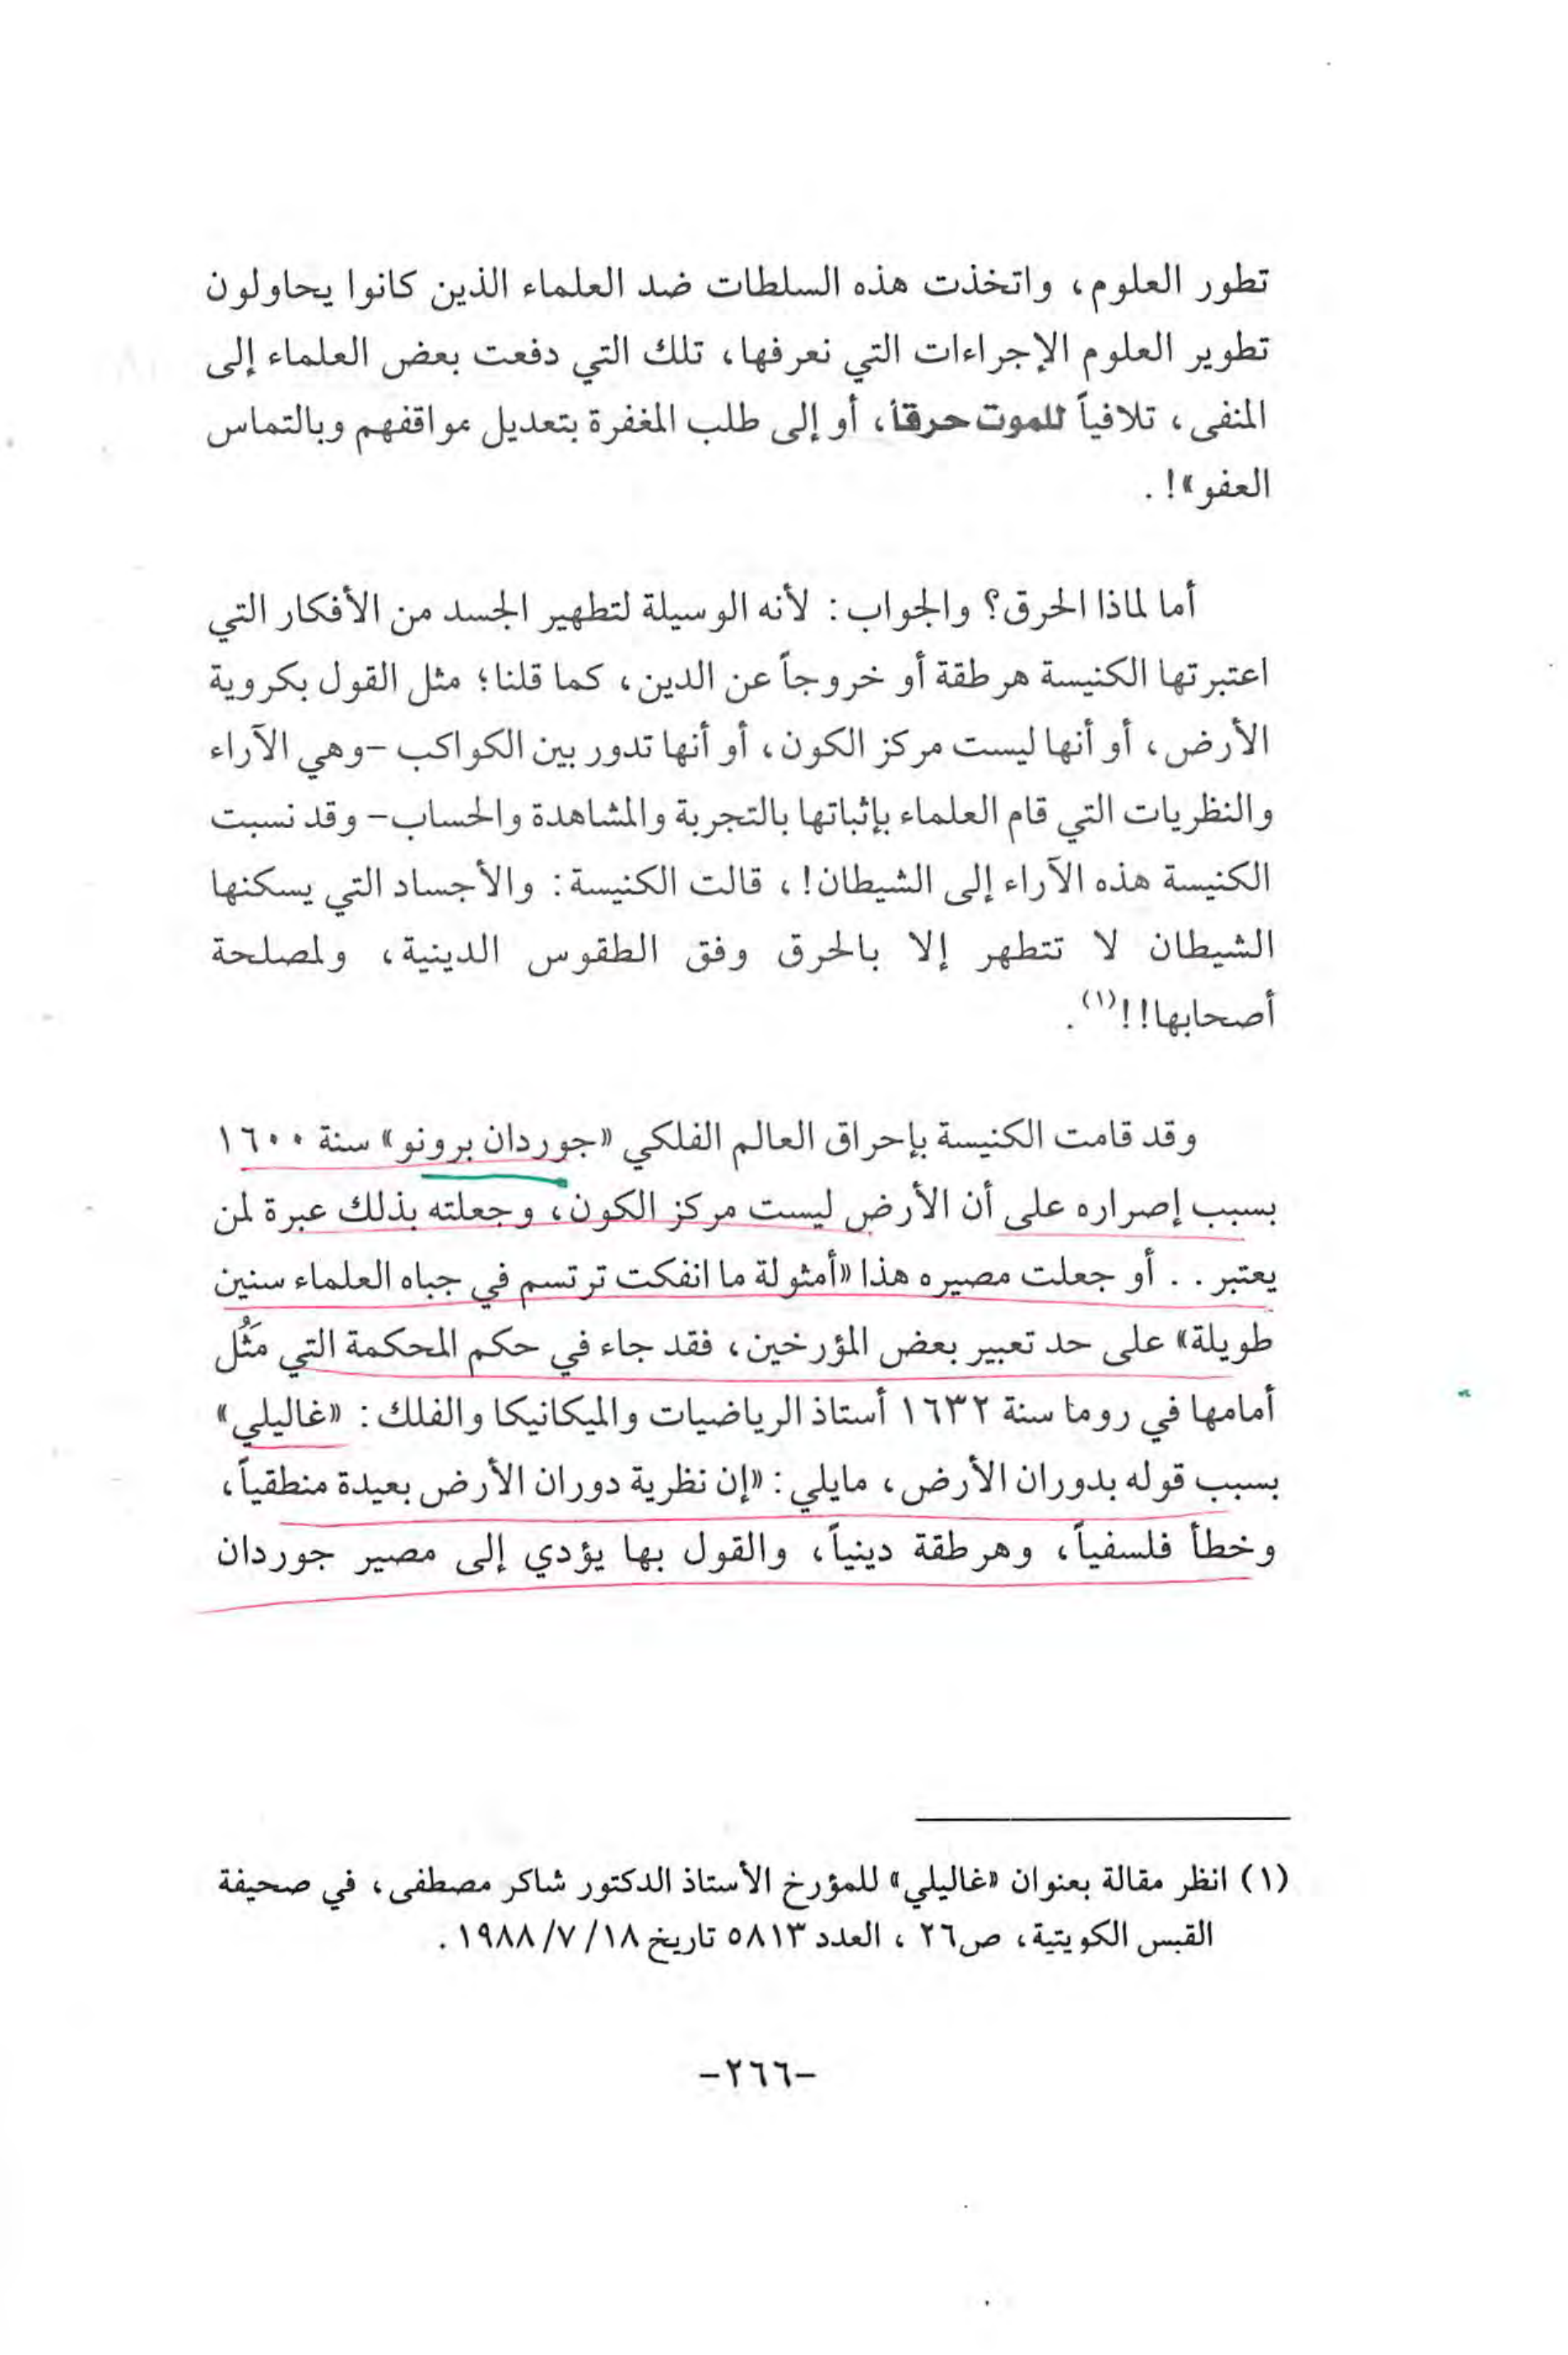 تطور العلوم، واتخذت هذه السلطات ضد العلماء الذين كانوا يحاولون
تطوير العلوم الإجراءات التي نعرفها، تلك التي دفعت بعض العلماء إلى
المنفى، تلافياً للموت حرقاً، أو إلى طلب المغفرة بتعديل مواقفهم وبالتماس
العفو»! .
أما لماذا الحرق؟ والجواب: لأنه الوسيلة لتطهير الجسد من الأفكار التي
اعتبرتها الكنيسة هرطقة أو خروجاً عن الدين، كما قلنا؛ مثل القول بكروية
الأرض، أو أنها ليست مركز الكون، أو أنها تدور بين الكواكب -وهي الآراء
والنظريات التي قام العلماء بإثباتها بالتجربة والمشاهدة والحساب- وقد نسبت
الكنيسة هذه الآراء إلى الشيطان!، قالت الكنيسة: والأجساد التي يسكنها
الشيطان لا تتطهر إلا بالحرق وفق الطقوس الدينية، ولمصلحة
أصحابها!!(١).
وقد قامت الكنيسة بإحراق العالم الفلكي «جوردان برونو» سنة ١٦٠٠
بسبب إصراره على أن الأرض ليست مركز الكون، وجعلته بذلك عبرة لمن
يعتبر . . أو جعلت مصيره هذا «أمثولة ما انفكت ترتسم في جباه العلماء سنين
طويلة» على حد تعبير بعض المؤرخين، فقد جاء في حكم المحكمة التي مَثُل
أمامها في روما سنة ١٦٣٢ أستاذ الرياضيات والميكانيكا والفلك: «غاليلي»
بسبب قوله بدوران الأرض، مايلي: «إن نظرية دوران الأرض بعيدة منطقياً،
وخطأ فلسفياً، وهرطقة دينياً، والقول بها يؤدي إلى مصير جوردان
(١) انظر مقالة بعنوان «غاليلي» للمؤرخ الأستاذ الدكتور شاكر مصطفى، في صحيفة
القبس الكويتية، ص٢٦ ، العدد ٥٨١٣ تاريخ ١٨/ ٧/ ١٩٨٨ .
-٢٦٦-